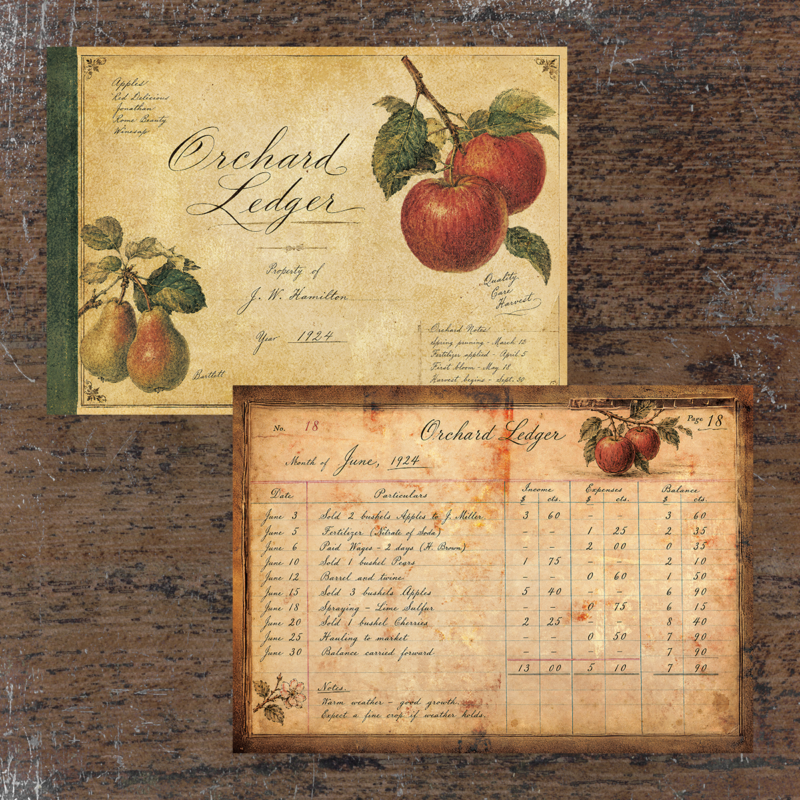 Apples
Red Delicious
Jonathan
Rome Beauty
Winesap
Orchard
Ledger
Property of
J. W. Hamilton
Year 1924
Quality
Care
Harvest
Bartlett
Orchard Notes
Spring pruning - March 10
Fertilizer applied - April 5
First bloom - May 18
Harvest begins - Sept. 20
No. 18
Orchard Ledger
Page 18
Month of June, 1924
Date Particulars Income $ cts. Expenses $ cts. Balance $ cts
June 3 Sold 2 bushels Apples to J. Miller 3 60 – – 3 60
June 5 Fertilizer (Nitrate of Soda) – – 1 25 2 35
June 6 Paid Wages - 2 days (H. Brown) – – 2 00 0 35
June 10 Sold 1 bushel Pears 1 75 – – 2 10
June 12 Barrel and twine – – 0 60 1 50
June 15 Sold 3 bushels Apples 5 40 – – 6 90
June 18 Spraying - Lime Sulfur – – 0 75 6 15
June 20 Sold 1 bushel Cherries 2 25 – – 8 40
June 25 Hauling to market – – 0 50 7 90
June 30 Balance carried forward – – – – 7 90
13 00 5 10 7 90
Notes
Warm weather - good growth.
Expect a fine crop if weather holds.